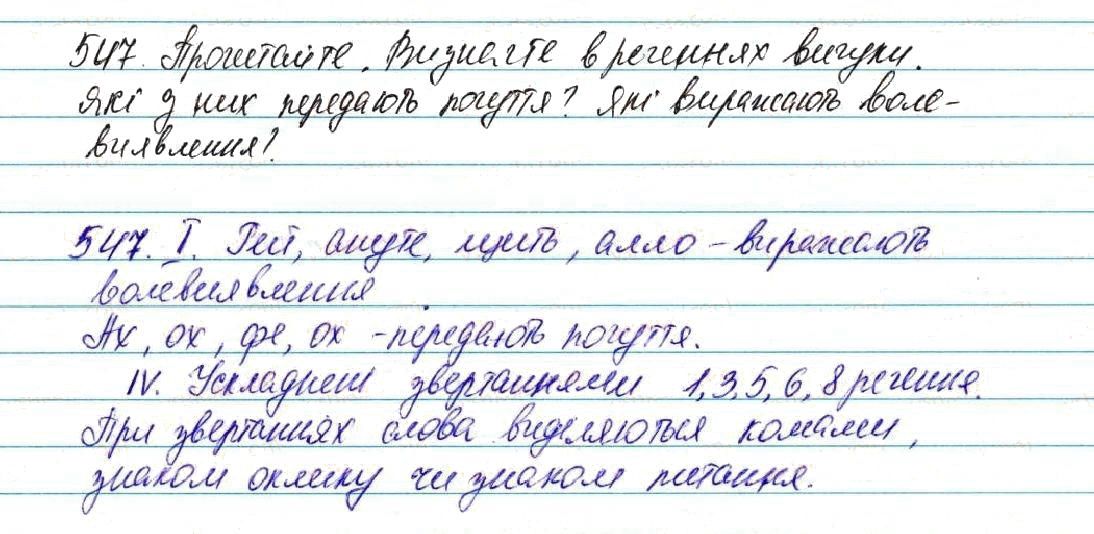 547. Прочитайте. Визначте в реченнях вигуки.
Які з них передають почуття? Які виражають воле-
виявлення?
547. I. Гей, ануте, щить, алло – виражають
волевиявлення
Ах, ох, фе, ох – передають почуття.
IV. Ускладнені звертаннями 1, 3, 5, 6, 8 речення.
При звертаннях слова виділяються комами,
знаком оклику чи знаком питання.